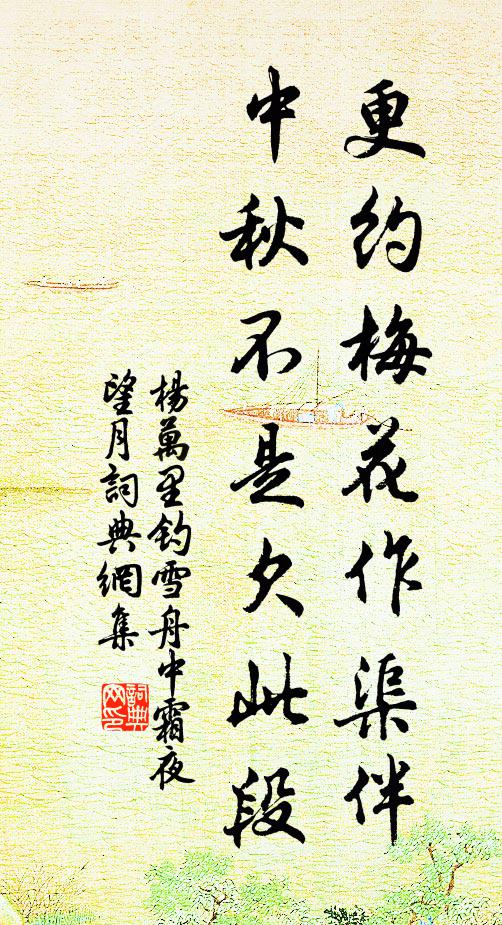 更约梅花作渠伴
中秋不是欠此段
楊萬里钓雪舟中霜夜
望月詞典網集
詞典网印